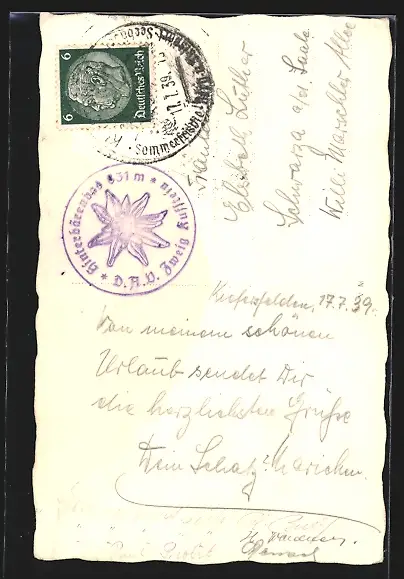 6 Deutsches Reich 6
17.7.39
Sommerfrische
Hinterbärenbad 831 m
D.A.V. Zweig Kufstein
Elisabeth Luther
Schwarza a/d. Saale
Willi Marschler Allee
Kiefersfelden, 17.7.39.
Von meinem schönen
Urlaub sendet Dir
die herzlichsten Grüße
Dein Schatz: Mariechen.